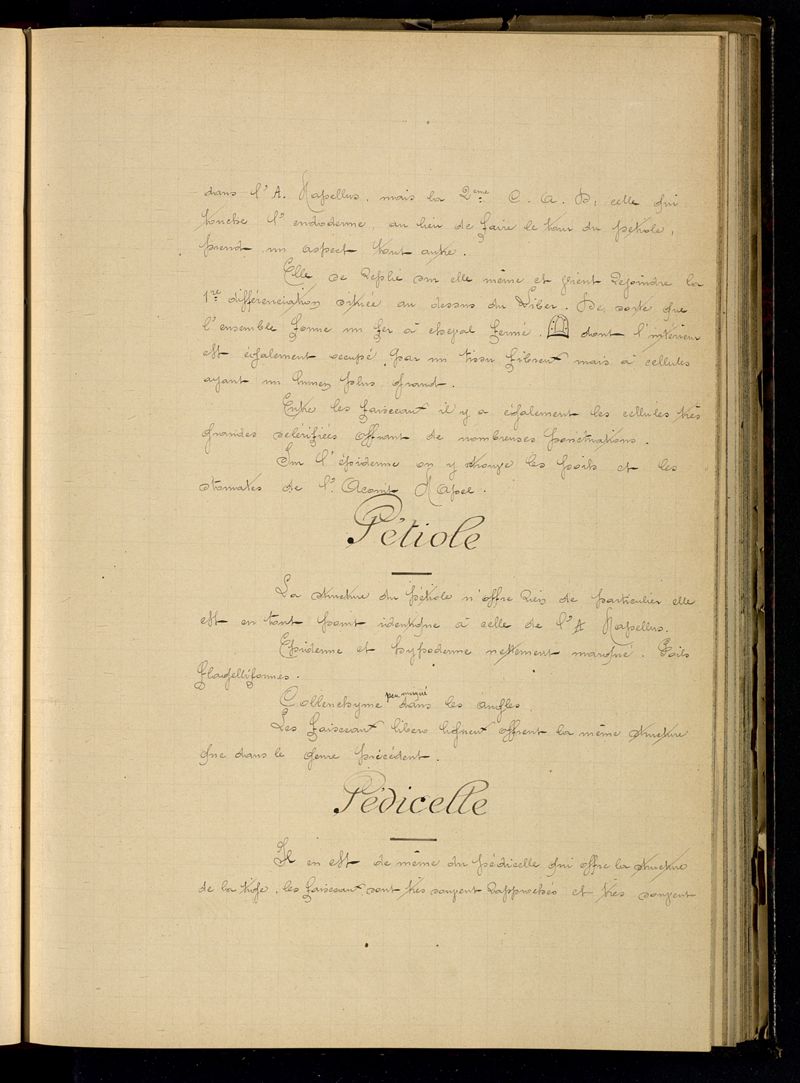 dans l'A. Napellus, mais la 2ème C. A. D, celle qui
touche l'endoderme, au lieu de faire le tour du pétiole,
prend un aspect tout autre.
Elle se replie sur elle même et vient rejoindre la
1re différenciation située au dessus du Liber. De sorte que
l'ensemble forme un fer à cheval fermé. dont l'intérieur
est également occupé par un tissu fibreux mais à cellules
ayant un lumen plus grand.
Entre les faisceaux il y a également les cellules très
grandes sclérifiées offrant de nombreuses ponctuations.
Sur l'épiderme on y trouve les poils et les
stomates de l'Aconit Napel.
Pétiole
La structure du pétiole n'offre rien de particulier elle
est en tout point identique à celle de l'A Napellus.
Epiderme et hypoderme nettement marqué. Poils
flagelliformes.
Collenchyme peu marqué dans les angles.
Les faisceaux libero ligneux offrent la même structure
que dans le genre précédent.
Pédicelle
Il en est de même du pédicelle qui offre la structure
de la tige, les faisceaux sont très souvent rapprochés et très souvent